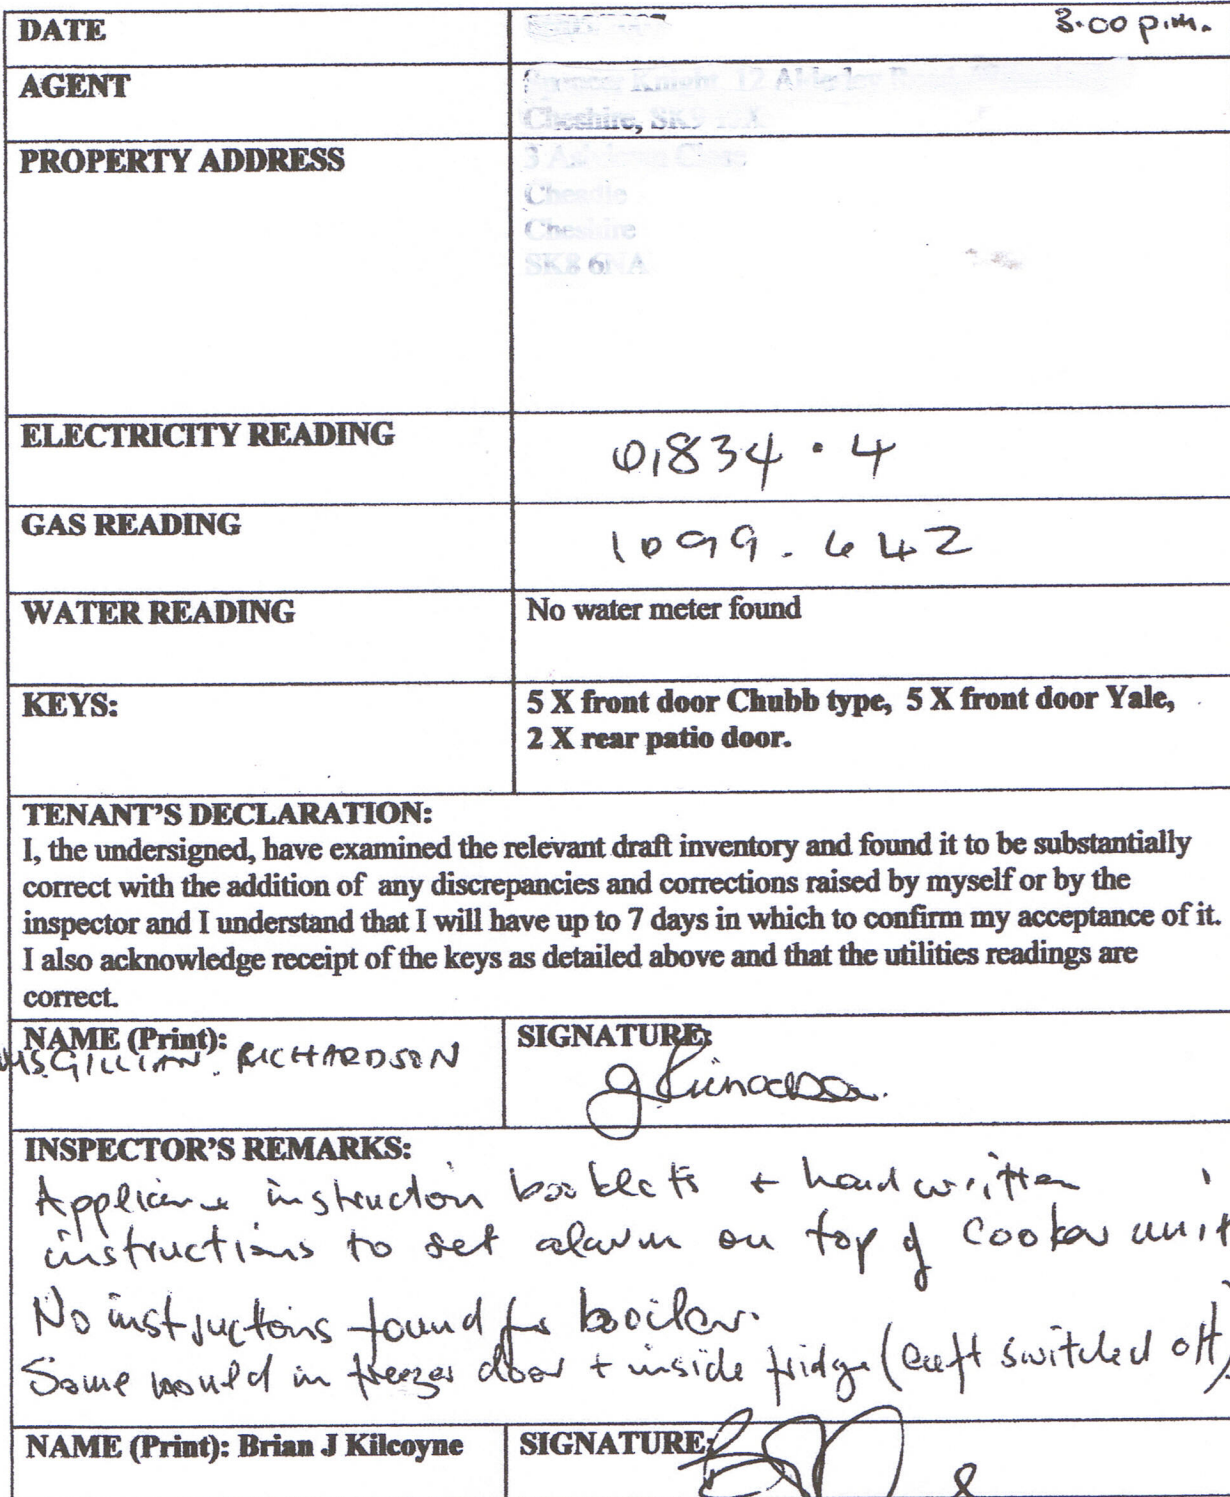 DATE 3.00 p.m.
AGENT Spencer Knight, 12 Alderley Road,
Cheshire, SK9
PROPERTY ADDRESS 3 Close
Cheadle
Cheshire
SK8 6NA
ELECTRICITY READING 01834.4
GAS READING 1099.642
WATER READING No water meter found
KEYS: 5 X front door Chubb type, 5 X front door Yale,
2 X rear patio door.
TENANT'S DECLARATION:
I, the undersigned, have examined the relevant draft inventory and found it to be substantially
correct with the addition of any discrepancies and corrections raised by myself or by the
inspector and I understand that I will have up to 7 days in which to confirm my acceptance of it.
I also acknowledge receipt of the keys as detailed above and that the utilities readings are
correct.
NAME (Print): SIGNATURE:
MS. GILLIAN RICHARDSON
INSPECTOR'S REMARKS:
Appliance instruction booklets + handwritten
instructions to set alarm on top of cooker unit
No instructions found for boiler.
Some mould in freezer door + inside fridge (left switched off).
NAME (Print): Brian J Kilcoyne SIGNATURE: